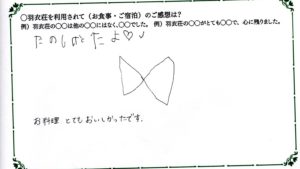 ○羽衣荘を利用されて(お食事・ご宿泊)のご感想は？
例）羽衣荘の○○は他の○○にはなく、○○でした。 例）羽衣荘の○○がとても○○で、心に残りました。
たのしかったよ♡♪
お料理 とてもおいしかったです。